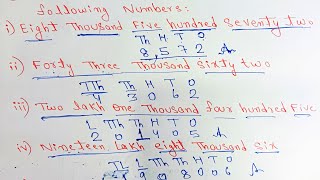 following Numbers:
i) Eight Thousand Five hundred Seventy two
Th H T O
8,5 7 2 A
ii) Forty Three Thousand Sixty two
TTh Th H T O
4 3 0 6 2
iii) Two lakh One Thousand four hundred Five
L TTh Th H T O
2 0 1 4 0 5 A
iv) Nineteen Lakh eight Thousand Six
TL L TTh Th H T O
9 0 8 0 0 6 A